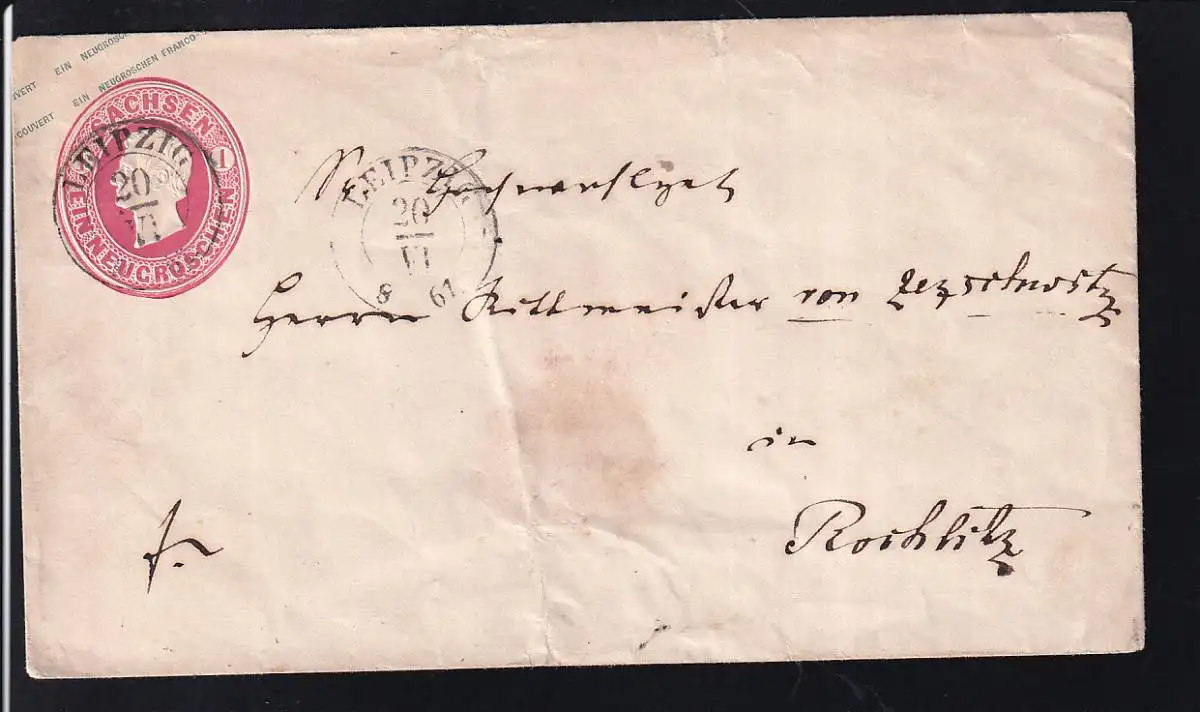 UVERT EIN NEUGROSCH
COUVERT EIN NEUGROSCHEN FRANCO-
SACHSEN
1
EIN NEUGROSCHEN
LEIPZIG
20
VI
LEIPZIG
20
VI
8 61.
Sr. Hochwohlgeb
Herrn Rittmeister von Zezschwitz
in
Rochlitz
fr.